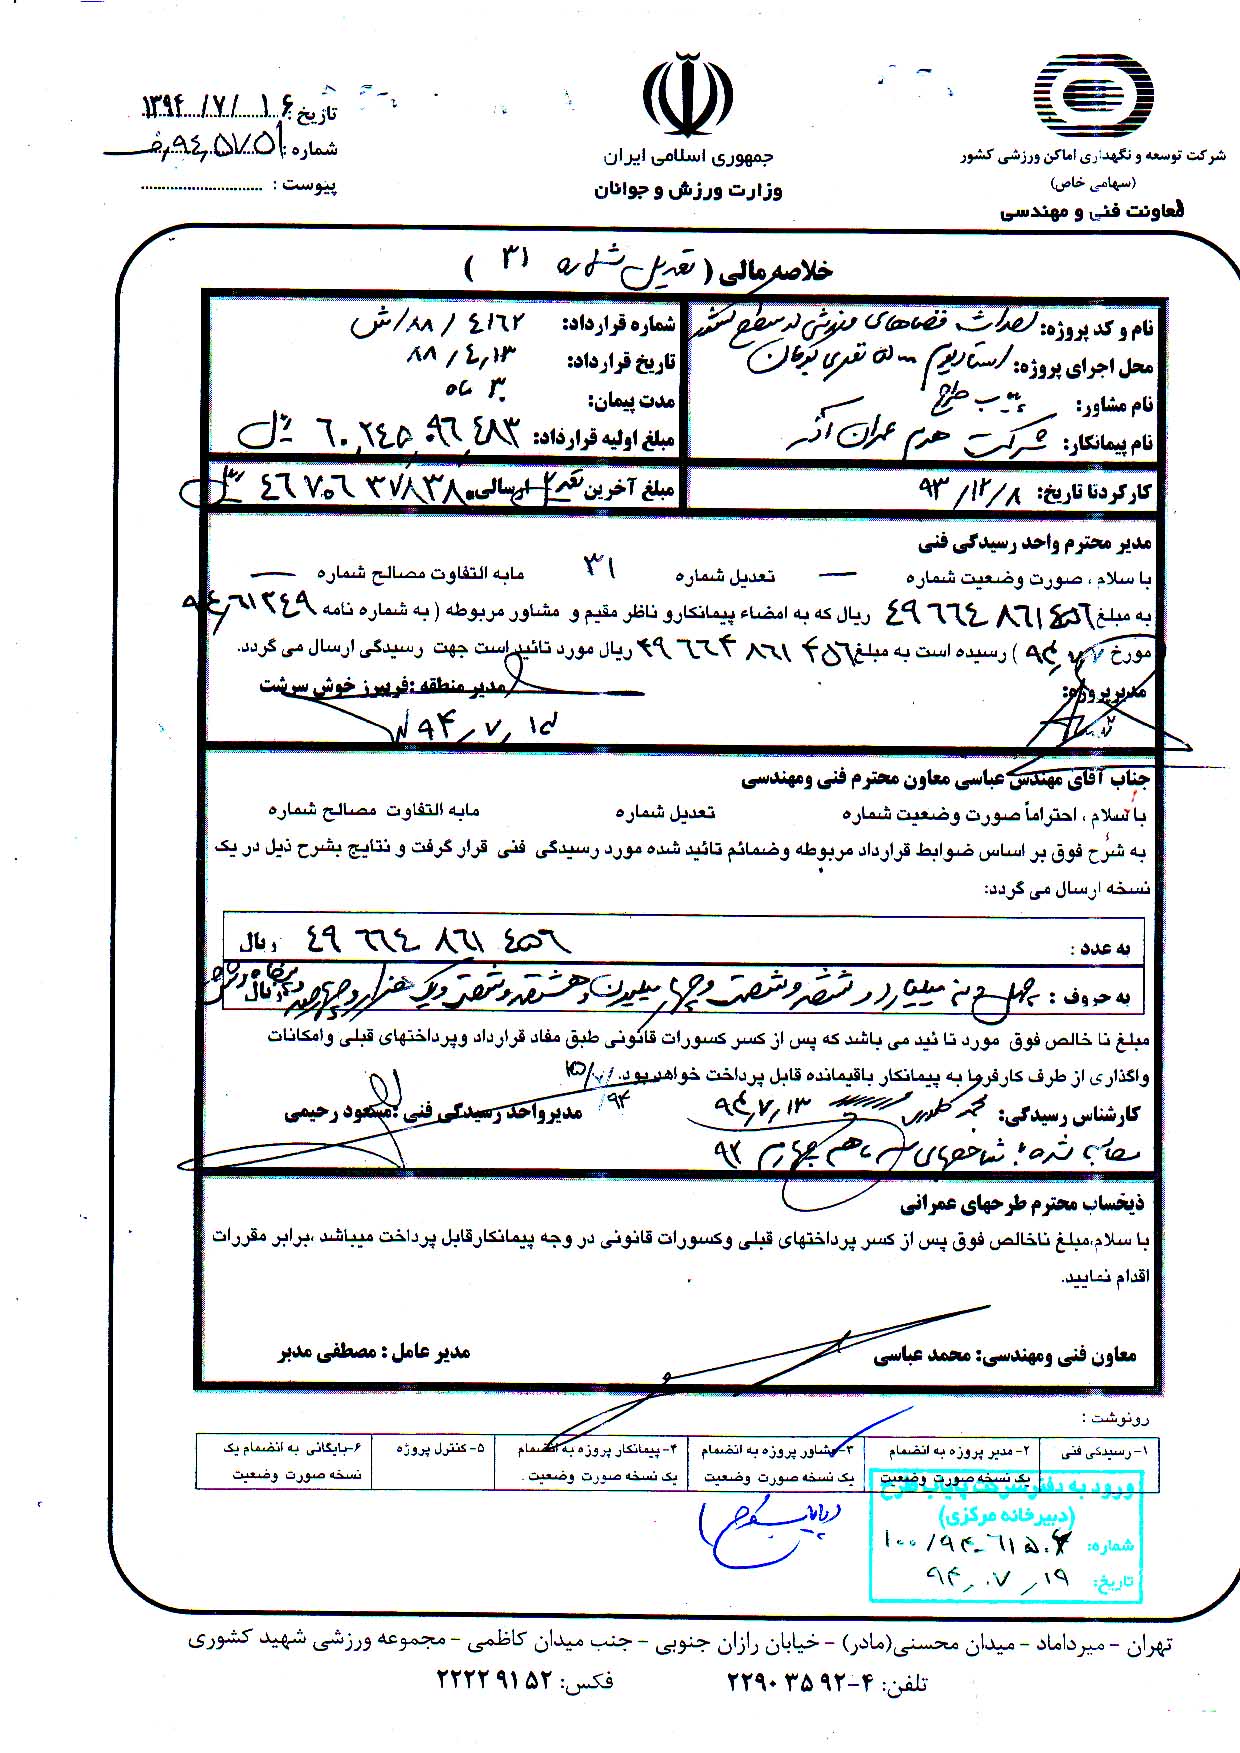 شرکت توسعه و نگهداری اماکن ورزشی کشور
(سهامی خاص)
معاونت فنی و مهندسی
جمهوری اسلامی ایران
وزارت ورزش و جوانان
تاریخ: ۱۳۹۴/۷/۱۶
شماره:
پیوست:
خلاصه مالی ( تعدیل شماره ۳۱ )
نام و کد پروژه: احداث فضاهای ورزشی در سطح کشور
محل اجرای پروژه: استادیوم ۵۰۰۰ نفری
نام مشاور: طرح
نام پیمانکار: شرکت هرم عمران آذر
شماره قرارداد: ۸۸/۴۱۶۲/ش
تاریخ قرارداد: ۸۸/۴/۱۳
مدت پیمان: ماه
مبلغ اولیه قرارداد: ریال
کارکرد تا تاریخ: ۹۳/۱۲/۸
مبلغ آخرین تعدیل ارسالی:
مدیر محترم واحد رسیدگی فنی
با سلام ، صورت وضعیت شماره — تعدیل شماره ۳۱ مابه التفاوت مصالح شماره —
به مبلغ ۴۹ ۶۶۴ ۸۶۱ ۴۵۶ ریال که به امضاء پیمانکار و ناظر مقیم و مشاور مربوطه ( به شماره نامه ۹۴٫۶۱۲۴۹
مورخ ) رسیده است به مبلغ ۴۹ ۶۶۴ ۸۶۱ ۴۵۶ ریال مورد تائید است جهت رسیدگی ارسال می گردد.
مدیر پروژه: مدیر منطقه :فریبرز خوش سرشت
جناب آقای مهندس عباسی معاون محترم فنی ومهندسی
با سلام ، احتراماً صورت وضعیت شماره تعدیل شماره مابه التفاوت مصالح شماره
به شرح فوق بر اساس ضوابط قرارداد مربوطه وضمائم تائید شده مورد رسیدگی فنی قرار گرفت و نتایج بشرح ذیل در یک
نسخه ارسال می گردد:
به عدد : ۴۹ ۶۶۴ ۸۶۱ ۴۵۶ ریال
به حروف : چهل و نه میلیارد و ششصد و شصت و چهار میلیون و هشتصد و شصت و یک هزار و چهارصد و پنجاه و شش ریال
مبلغ نا خالص فوق مورد تا ئید می باشد که پس از کسر کسورات قانونی طبق مفاد قرارداد وپرداختهای قبلی وامکانات
واگذاری از طرف کارفرما به پیمانکار باقیمانده قابل پرداخت خواهد بود.
کارشناس رسیدگی: ۹۴٫۷٫۱۳ مدیرواحد رسیدگی فنی :مسعود رحیمی
شاخصهای سه ماهه چهارم ۹۳
ذیحساب محترم طرحهای عمرانی
با سلام،مبلغ ناخالص فوق پس از کسر پرداختهای قبلی وکسورات قانونی در وجه پیمانکارقابل پرداخت میباشد ،برابر مقررات
اقدام نمایید.
معاون فنی ومهندسی: محمد عباسی مدیر عامل : مصطفی مدبر
رونوشت :
۱-رسیدگی فنی
۲-مدیر پروژه به انضمام یک نسخه صورت وضعیت
۳-مشاور پروژه به انضمام یک نسخه صورت وضعیت
۴-پیمانکار پروژه به انضمام یک نسخه صورت وضعیت .
۵-کنترل پروژه
۶-بایگانی به انضمام یک نسخه صورت وضعیت
ورود به دفتر شرکت پایاب طرح
(دبیرخانه مرکزی)
شماره: ۱۰۰/۹۴-۶۱۵۰۴
تاریخ: ۹۴٫۰۷٫۱۹
تهران – میرداماد – میدان محسنی(مادر) – خیابان رازان جنوبی – جنب میدان کاظمی – مجموعه ورزشی شهید کشوری
تلفن: ۴-۲۲۹۰۳۵۹۲ فکس: ۲۲۲۲۹۱۵۲